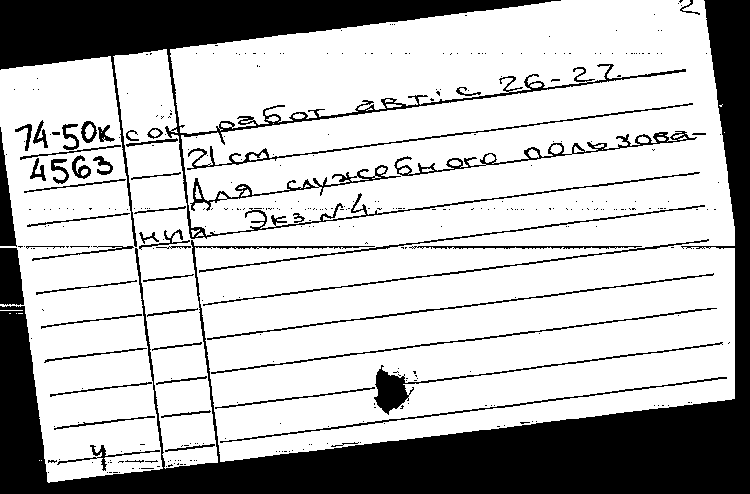 2
74-50к сок работ авт.: с. 26-27.
4563 21 см.
Для служебного пользова-
ния. Экз. №4.
ч